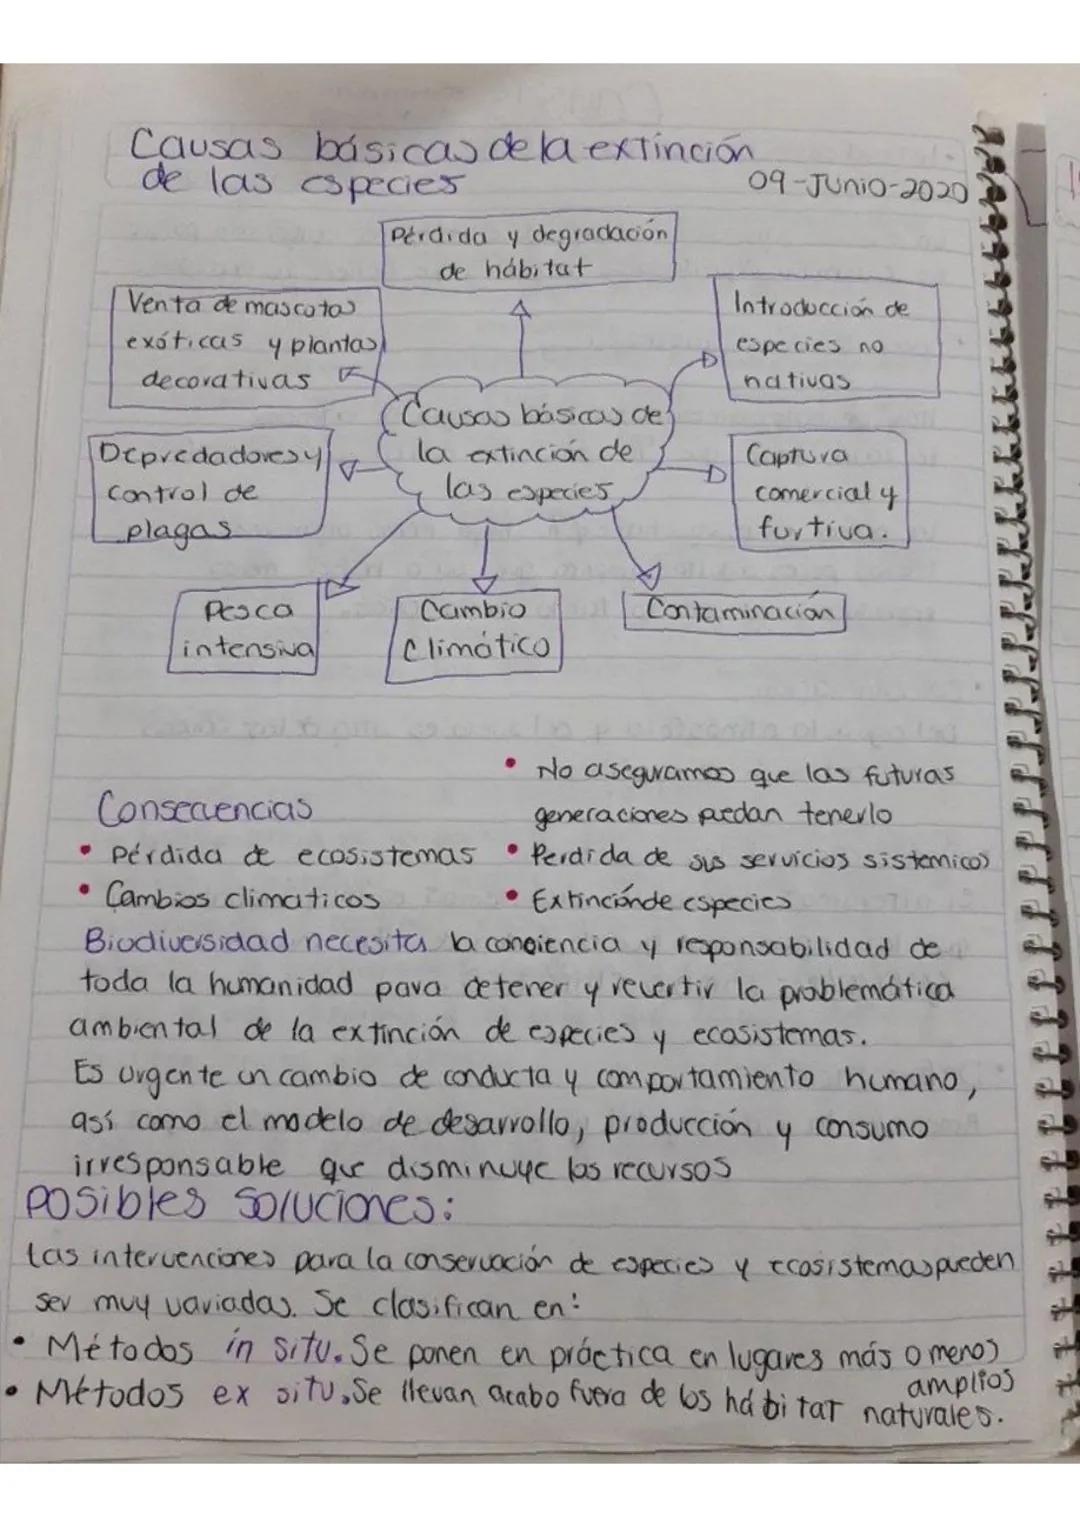 Causas básicas de la extinción
de las especies
09-Junio-2020
Pérdida y degradación
de hábitat
Venta de mascotas
exóticas y plantas
decorativas
Introducción de
especies no
nativas
Causas básicas de
la extinción de
las especies
Depredadores y
control de
plagas
Captura
comercial y
furtiva.
Pesca
intensiva
Cambio
Climático
Contaminación
Consecuencias
• Pérdida de ecosistemas
• Cambios climaticos
• No aseguramos que las futuras
generaciones puedan tenerlo
• Perdida de sus servicios sistemicos
• Extinciónde especies
Biodiversidad necesita la conciencia y responsabilidad de
toda la humanidad para detener y revertir la problemática
ambiental de la extinción de especies y ecosistemas.
Es urgente un cambio de conducta y comportamiento humano,
así como el modelo de desarrollo, producción y consumo
irresponsable que disminuye los recursos
Posibles soluciones:
Las intervenciones para la conservación de especies y ecosistemas pueden
ser muy variadas. Se clasifican en:
• Métodos in situ. Se ponen en práctica en lugares más o menos
amplios
• Métodos ex situ. Se llevan acabo fuera de los hábitat naturales.